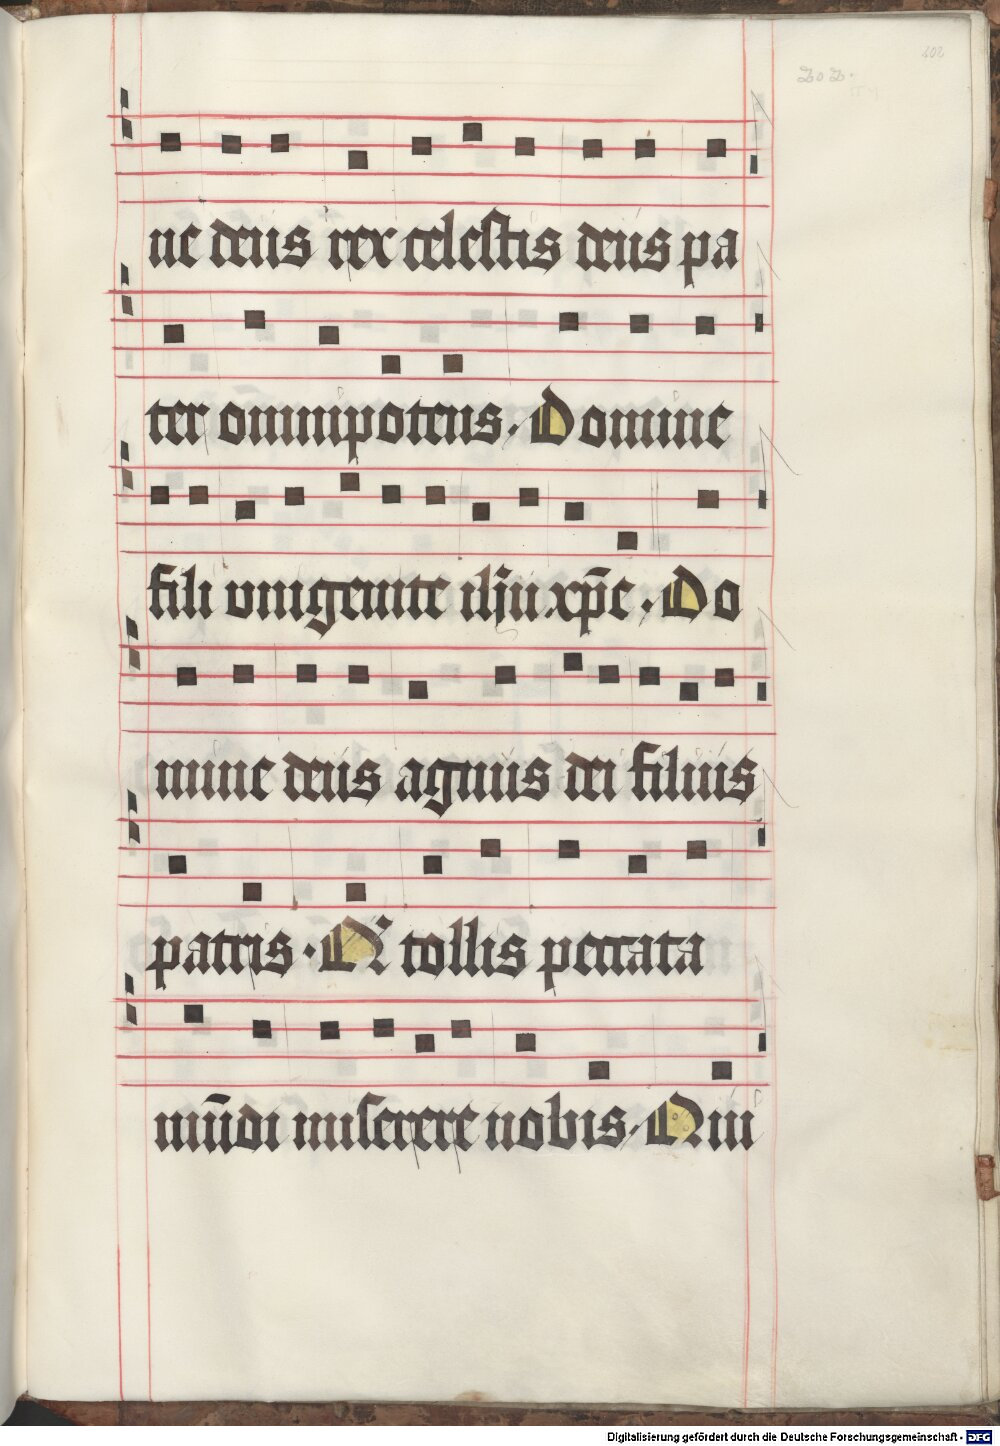 102
202.
ne deus rex celestis deus pa
ter omnipotens. Domine
fili vnigenite ihu xp̄e. Do
mine deus agnus dei filius
patris. Qi tollis peccata
mūdi miserere nobis. Qui
Digitalisierung gefördert durch die Deutsche Forschungsgemeinschaft - DFG